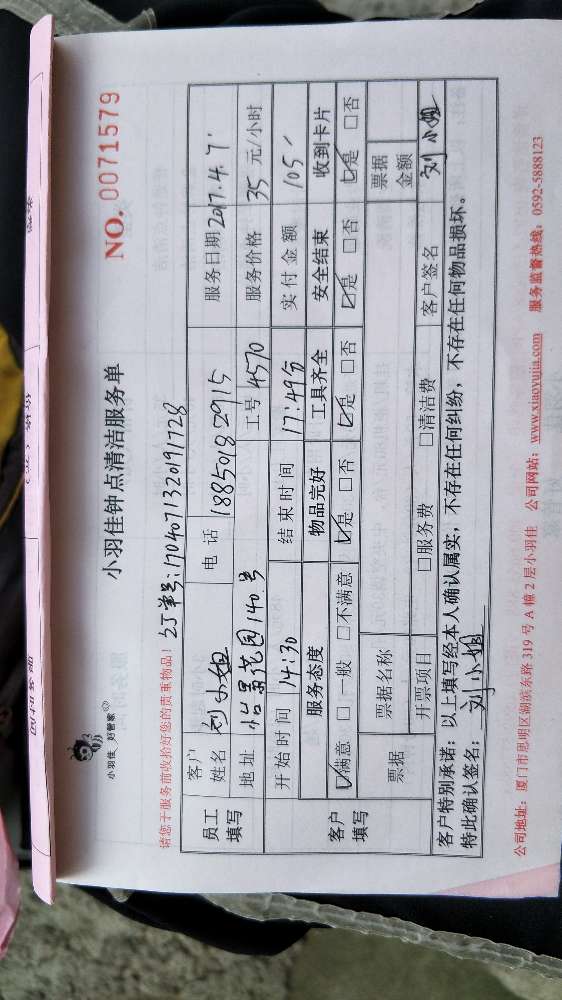 小羽佳 好管家
小羽佳钟点清洁服务单
NO. 0071579
请您于服务前收拾好您的贵重物品！ 订单号:170407132091728
员工填写 客户姓名 刘小姐 电话 18850182915 服务日期 2017.4.7
地址 怡景花园140号 工号 4570 服务价格 35 元/小时
客户填写 开始时间 14:30 结束时间 17:49分 实付金额 105
服务态度 物品完好 工具齐全 安全结束 收到卡片
☑满意 □一般 □不满意 ☑是 □否 ☑是 □否 ☑是 □否 ☑是 □否
票据 票据名称 票据金额
开票项目 □服务费 □清洁费 客户签名 刘小姐
客户特别承诺：以上填写经本人确认属实，不存在任何纠纷，不存在任何物品损坏。
特此确认签名：刘小姐
公司地址：厦门市思明区湖滨东路 319 号 A 幢 2 层小羽佳 公司网站：www.xiaoyujia.com 服务监督热线：0592-5888123